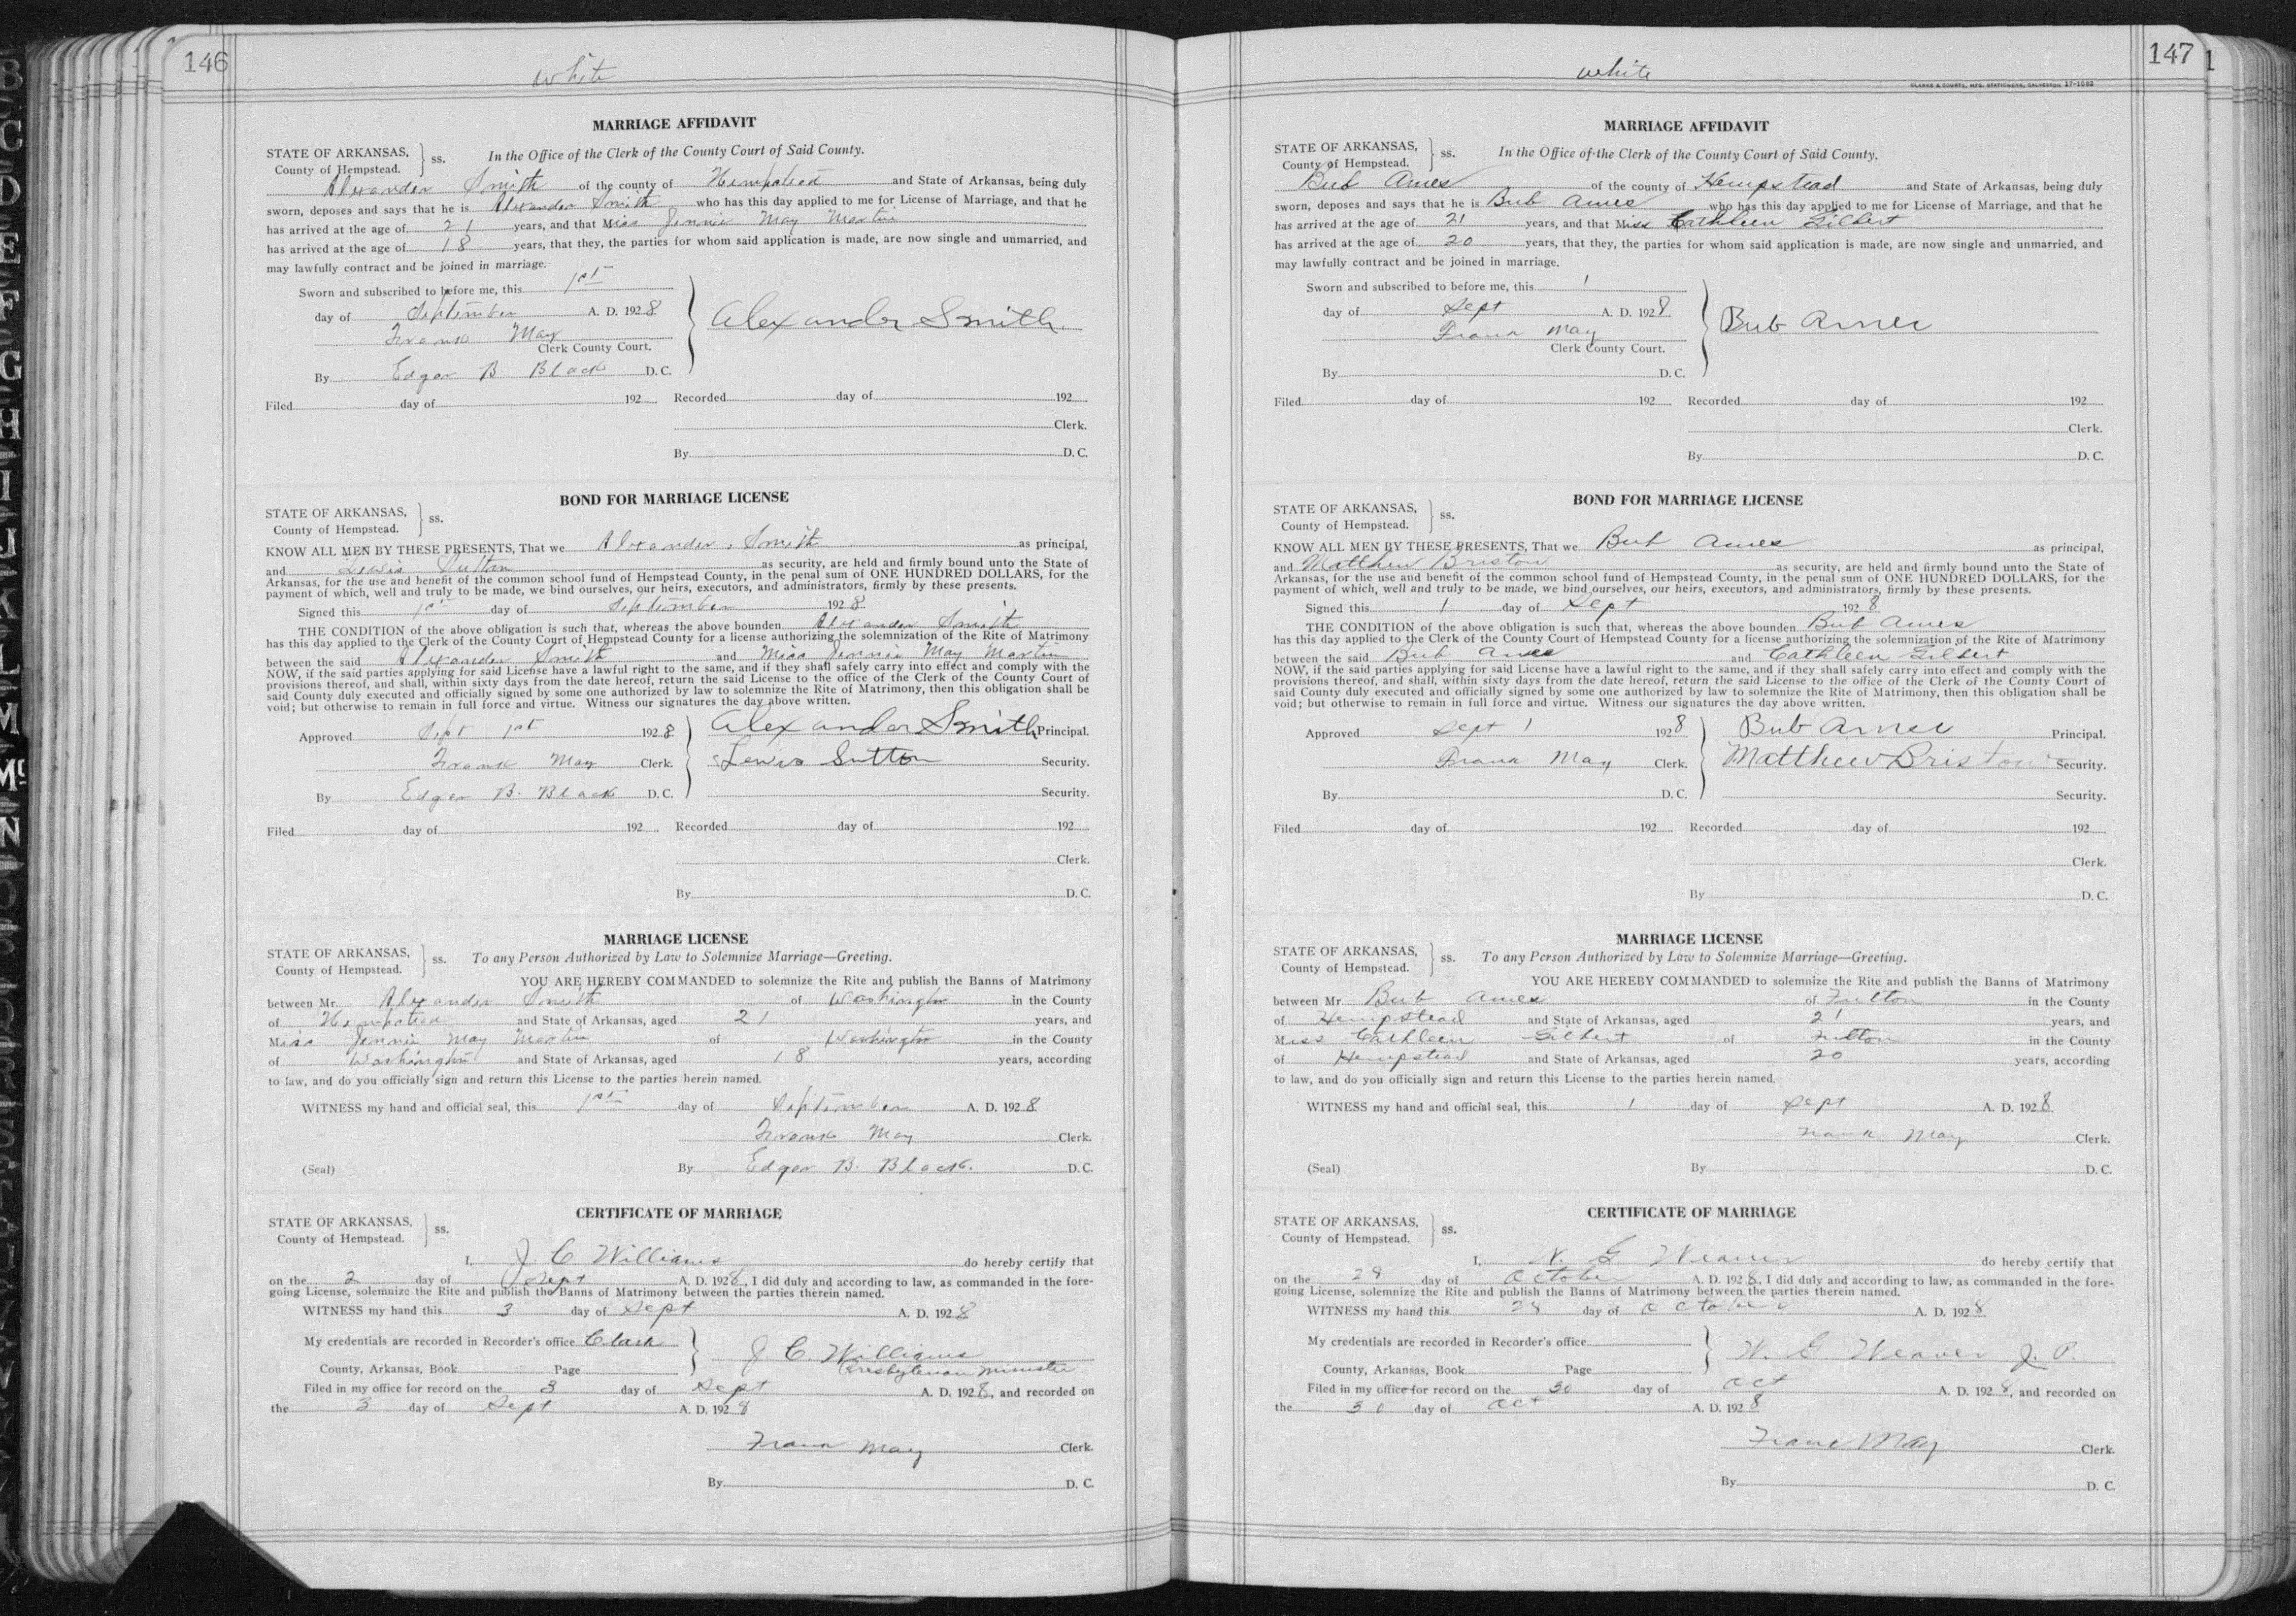 146
white
MARRIAGE AFFIDAVIT
STATE OF ARKANSAS,
County of Hempstead.
ss.
In the Office of the Clerk of the County Court of Said County.
Alexander Smith of the county of Hempstead and State of Arkansas, being duly
sworn, deposes and says that he is Alexander Smith who has this day applied to me for License of Marriage, and that he
has arrived at the age of 21 years, and that Miss Jennie May Martin
has arrived at the age of 18 years, that they, the parties for whom said application is made, are now single and unmarried, and
may lawfully contract and be joined in marriage.
Sworn and subscribed to before me, this 1st
day of September A. D. 1928
Frank May
Clerk County Court.
By Edgar B Black D. C.
Alexander Smith
Filed day of 192 Recorded day of 192
Clerk.
By D. C.
BOND FOR MARRIAGE LICENSE
STATE OF ARKANSAS,
County of Hempstead.
ss.
KNOW ALL MEN BY THESE PRESENTS, That we Alexander Smith as principal,
and Lewis Sutton as security, are held and firmly bound unto the State of
Arkansas, for the use and benefit of the common school fund of Hempstead County, in the penal sum of ONE HUNDRED DOLLARS, for the
payment of which, well and truly to be made, we bind ourselves, our heirs, executors, and administrators, firmly by these presents.
Signed this 1st day of September 1928
THE CONDITION of the above obligation is such that, whereas the above bounden Alexander Smith
has this day applied to the Clerk of the County Court of Hempstead County for a license authorizing the solemnization of the Rite of Matrimony
between the said Alexander Smith and Miss Jennie May Martin
NOW, if the said parties applying for said License have a lawful right to the same, and if they shall safely carry into effect and comply with the
provisions thereof, and shall, within sixty days from the date hereof, return the said License to the office of the Clerk of the County Court of
said County duly executed and officially signed by some one authorized by law to solemnize the Rite of Matrimony, then this obligation shall be
void; but otherwise to remain in full force and virtue. Witness our signatures the day above written.
Approved Sept 1st 1928 Alexander Smith Principal.
Frank May Clerk. Lewis Sutton Security.
By Edgar B. Black D. C. Security.
Filed day of 192 Recorded day of 192
Clerk.
By D. C.
MARRIAGE LICENSE
STATE OF ARKANSAS,
County of Hempstead.
ss.
To any Person Authorized by Law to Solemnize Marriage—Greeting.
YOU ARE HEREBY COMMANDED to solemnize the Rite and publish the Banns of Matrimony
between Mr. Alexander Smith of Washington in the County
of Hempstead and State of Arkansas, aged 21 years, and
Miss Jennie May Martin of Washington in the County
of Washington and State of Arkansas, aged 18 years, according
to law, and do you officially sign and return this License to the parties herein named.
WITNESS my hand and official seal, this 1st day of September A. D. 1928
Frank May Clerk.
(Seal) By Edgar B. Black. D. C.
CERTIFICATE OF MARRIAGE
STATE OF ARKANSAS,
County of Hempstead.
ss.
I, J. C Williams do hereby certify that
on the 2 day of Sept A. D. 1928, I did duly and according to law, as commanded in the fore-
going License, solemnize the Rite and publish the Banns of Matrimony between the parties therein named.
WITNESS my hand this 3 day of Sept A. D. 1928
My credentials are recorded in Recorder's office Clark
County, Arkansas, Book Page
J C. Williams
Presbyterian Minister
Filed in my office for record on the 3 day of Sept A. D. 1928, and recorded on
the 3 day of Sept A. D. 1928
Frank May Clerk.
By D. C.
147
1
white
CLARKE & COURTS, MFG. STATIONERS, GALVESTON 17-1082
MARRIAGE AFFIDAVIT
STATE OF ARKANSAS,
County of Hempstead.
ss.
In the Office of the Clerk of the County Court of Said County.
Bub Ames of the county of Hempstead and State of Arkansas, being duly
sworn, deposes and says that he is Bub Ames who has this day applied to me for License of Marriage, and that he
has arrived at the age of 21 years, and that Miss Cathleen Gilbert
has arrived at the age of 20 years, that they, the parties for whom said application is made, are now single and unmarried, and
may lawfully contract and be joined in marriage.
Sworn and subscribed to before me, this 1
day of Sept A. D. 1928
Frank May
Clerk County Court.
By D. C.
Bub Ames
Filed day of 192 Recorded day of 192
Clerk.
By D. C.
BOND FOR MARRIAGE LICENSE
STATE OF ARKANSAS,
County of Hempstead.
ss.
KNOW ALL MEN BY THESE PRESENTS, That we Bub Ames as principal,
and Matthew Bristow as security, are held and firmly bound unto the State of
Arkansas, for the use and benefit of the common school fund of Hempstead County, in the penal sum of ONE HUNDRED DOLLARS, for the
payment of which, well and truly to be made, we bind ourselves, our heirs, executors, and administrators, firmly by these presents.
Signed this 1 day of Sept 1928
THE CONDITION of the above obligation is such that, whereas the above bounden Bub Ames
has this day applied to the Clerk of the County Court of Hempstead County for a license authorizing the solemnization of the Rite of Matrimony
between the said Bub Ames and Cathleen Gilbert
NOW, if the said parties applying for said License have a lawful right to the same, and if they shall safely carry into effect and comply with the
provisions thereof, and shall, within sixty days from the date hereof, return the said License to the office of the Clerk of the County Court of
said County duly executed and officially signed by some one authorized by law to solemnize the Rite of Matrimony, then this obligation shall be
void; but otherwise to remain in full force and virtue. Witness our signatures the day above written.
Approved Sept 1 1928 Bub Ames Principal.
Frank May Clerk. Matthew Bristow Security.
By D. C. Security.
Filed day of 192 Recorded day of 192
Clerk.
By D. C.
MARRIAGE LICENSE
STATE OF ARKANSAS,
County of Hempstead.
ss.
To any Person Authorized by Law to Solemnize Marriage—Greeting.
YOU ARE HEREBY COMMANDED to solemnize the Rite and publish the Banns of Matrimony
between Mr. Bub Ames of Fulton in the County
of Hempstead and State of Arkansas, aged 21 years, and
Miss Cathleen Gilbert of Fulton in the County
of Hempstead and State of Arkansas, aged 20 years, according
to law, and do you officially sign and return this License to the parties herein named.
WITNESS my hand and official seal, this 1 day of Sept A. D. 1928
Frank May Clerk.
(Seal) By D. C.
CERTIFICATE OF MARRIAGE
STATE OF ARKANSAS,
County of Hempstead.
ss.
I, W. G Weaver do hereby certify that
on the 28 day of October A. D. 1928, I did duly and according to law, as commanded in the fore-
going License, solemnize the Rite and publish the Banns of Matrimony between the parties therein named.
WITNESS my hand this 28 day of October A. D. 1928
My credentials are recorded in Recorder's office
County, Arkansas, Book Page
W. G. Weaver J. P.
Filed in my office for record on the 30 day of Oct A. D. 1928, and recorded on
the 30 day of Oct A. D. 1928
Frank May Clerk.
By D. C.
B
C
D
E
F
G
H
I
J
K
L
M
Mc
N